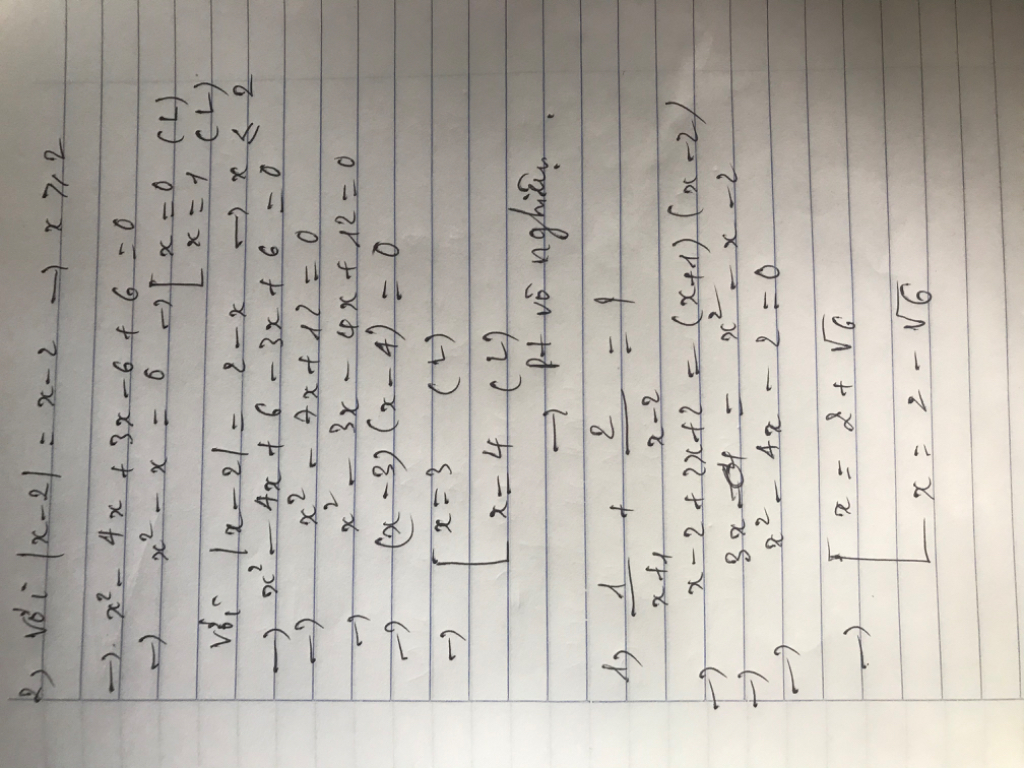 2) Với |x-2| = x-2 → x ≥ 2
→ x² - 4x + 3x - 6 + 6 = 0
→ x² - x = 6 → [ x = 0 (L)
x = 1 (L)
Với |x-2| = 2-x → x ≤ 2
→ x² - 4x + 6 - 3x + 6 = 0
→ x² - 7x + 12 = 0
→ x² - 3x - 4x + 12 = 0
→ (x-3)(x-4) = 0
→ [ x = 3 (L)
x = 4 (L)
→ pt vô nghiệm.
1) 1/(x+1) + 2/(x-2) = 1
→ x - 2 + 2x + 2 = (x+1)(x-2)
→ 3x = x² - x - 2
→ x² - 4x - 2 = 0
→ [ x = 2 + √6
x = 2 - √6